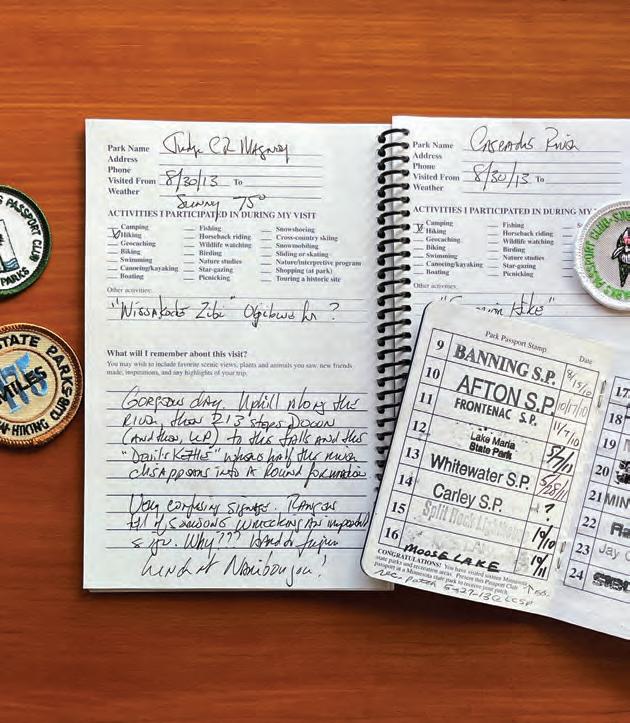 PASSPORT CLUB
PARKS
STATE PARKS
175
MILES
HIKING CLUB
Park Name Judge CR Magney
Address
Phone
Visited From 8/30/13 To
Weather Sunny 75°
ACTIVITIES I PARTICIPATED IN DURING MY VISIT
Camping Fishing Snowshoeing
Hiking Horseback riding Cross-country skiing
Geocaching Wildlife watching Snowmobiling
Biking Birding Sliding or skating
Swimming Nature studies Nature/interpretive program
Canoeing/kayaking Star-gazing Shopping (at park)
Boating Picnicking Touring a historic site
Other activities:
"Wissakode Zibi" Ojibwe ?
What will I remember about this visit?
You may wish to include favorite scenic views, plants and animals you saw, new friends
made, inspirations, and any highlights of your trip.
Gorgeous day. Uphill along the
River, then 213 steps down
(and then, up) to the falls and the
"Devil's Kettle" where half the river
disappears into a round formation
Very confusing signage. Rangers
tell of someone wrecking an
Why???
Lunch at Naniboujou!
Park Name Cascade River
Address
Phone
Visited From 8/30/13 To
Weather
ACTIVITIES I PARTICIPATED IN DURING MY
Camping Fishing
Hiking Horseback riding
Geocaching Wildlife watching
Biking Birding
Swimming Nature studies
Canoeing/kayaking Star-gazing
Boating Picnicking
Other activities:
Hike"
PASSPORT CLUB
Park Passport Stamp Date
9 BANNING S.P. 8/15/10
10 AFTON S.P. 10/17/10
11 FRONTENAC S.P. 11/7/10
12 Lake Maria
State Park
13 Whitewater S.P. 5/28/11
14 Carley S.P. ?
15 Split Rock Lighthouse 10/10
16 MOOSE LAKE 10/11
CONGRATULATIONS! You have visited sixteen Minnesota
state parks and recreation areas. Present this Passport Club
passport at a Minnesota state park to receive your patch.
rec patch 5-27-13 @ LCSP
17
18
19
20
21 MIN
22
23 Jay
24